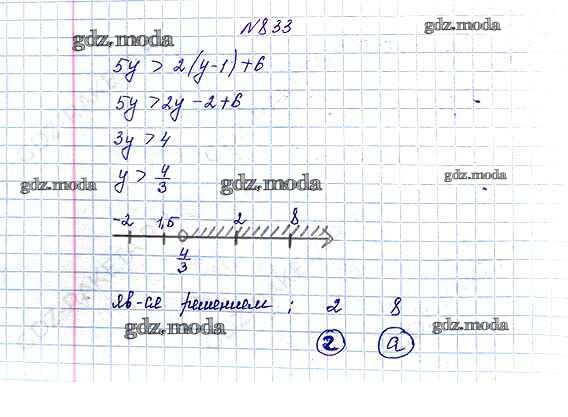 №833
gdz.moda
gdz.moda
5y > 2(y-1)+6
5y > 2y - 2 + 6
3y > 4
y > 4/3
gdz.moda
gdz.moda
gdz.moda
-2 1,5 2 8
4/3
яв-ся решением : 2 8
gdz.moda
gdz.moda
г а